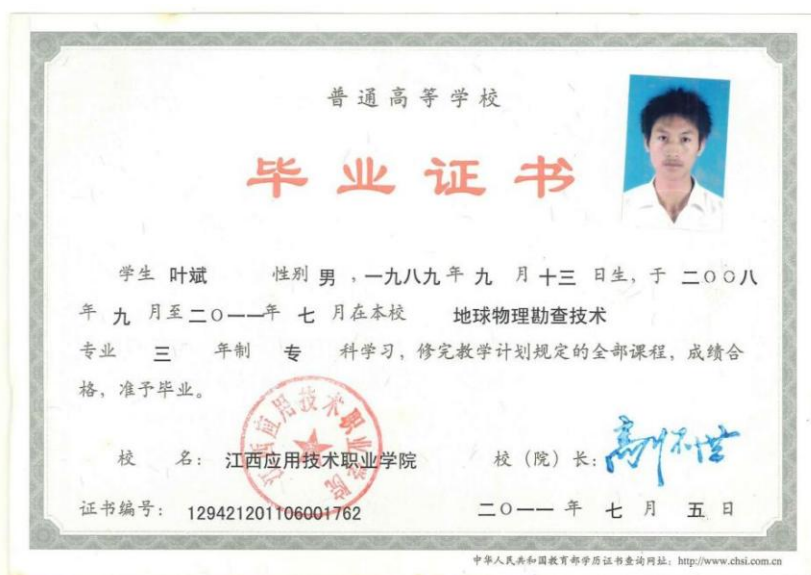 普通高等学校
毕业证书
学生 叶斌 性别 男 ，一九八九年 九 月 十三 日生，于 二○○八
年 九 月至二○一一年 七 月在本校 地球物理勘查技术
专业 三 年制 专 科学习，修完教学计划规定的全部课程，成绩合
格，准予毕业。
江西应用技术职业学院
校 名： 江西应用技术职业学院 校（院）长：
证书编号： 129421201106001762 二○一一 年 七 月 五 日
中华人民共和国教育部学历证书查询网址：http://www.chsi.com.cn